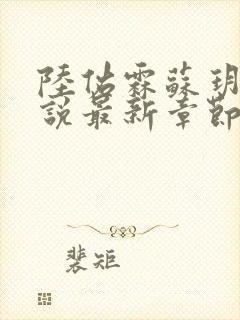 陸佔霖蘇玥
說最新章節
裴矩